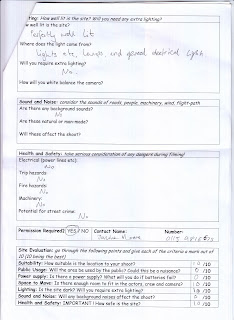 Lighting: How well lit is the site? Will you need any extra lighting?
How well lit is the site?
Perfectly well lit
Where does the light come from?
lights etc, lamps and general electrical lights
Will you require extra lighting?
No.
How will you white balance the camera?
Sound and Noise: consider the sounds of roads, people, machinery, wind, flight-path
Are there any background sounds?
No
Are these natural or man-made?
Will these affect the shoot?
Health and Safety: take serious consideration of any dangers during filming
Electrical (power lines etc):
No
Trip hazards:
No
Fire hazards:
No
Machinery:
No
Potential for street crime:
No
Permission Required? YES / NO Contact Name: Number:
Site Evaluation: go through the following points and give each of the criteria a mark out of
10 (10 being the best)
Suitability: How suitable is the location to your shoot? /10
Public Usage: Will the area be used by the public? Could this be a nuisance? /10
Power supply: Is there a power supply? What will you do if batteries fail? /10
Space to Move: Is there enough room to fit in the actors, crew and camera? /10
Lighting: Is the site dark? Will you require extra lighting? /10
Sound and Noise: Will any background noises affect the shoot? /10
Health and Safety: IMPORTANT! How safe is the site? /10